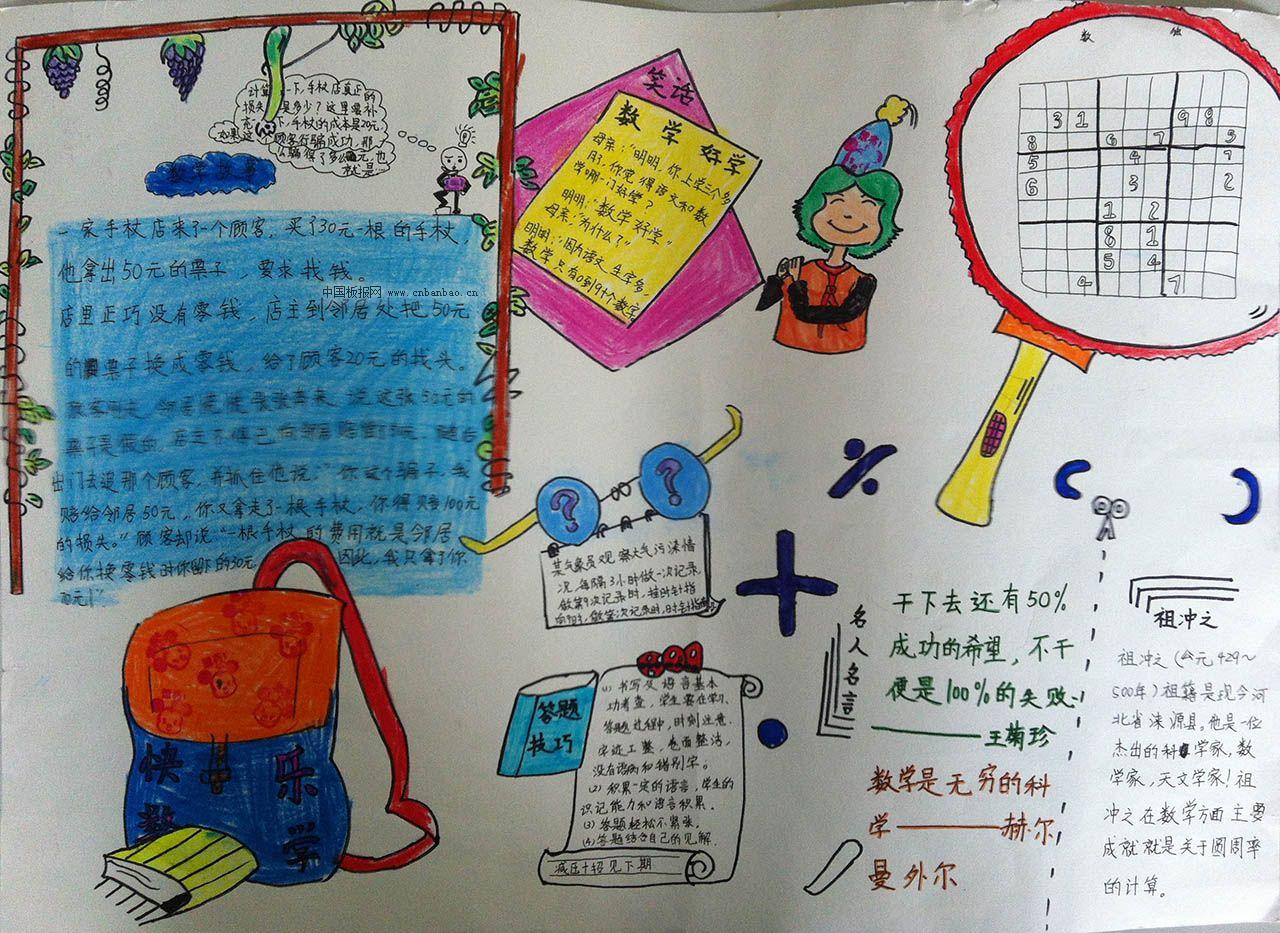 计算一下,手杖店真正的
损失是多少?这里要补
充一下,手杖的成本是20元
如果这 顾客行骗成功,那
么骗得了多少元,也
就是…
数学故事
一家手杖店来了一个顾客,买了30元一根的手杖,
他拿出50元的票子,要求找钱。
店里正巧没有零钱,店主到邻居处把50元
中国板报网 www.cnbanbao.cn
的票子换成零钱,给了顾客20元的找头。
顾客刚走,邻居慌慌张张奔来,说这张50元的
票子是假的,店主不得已向邻居赔偿了50元,随后
出门去追那个顾客,并抓住他说:"你这个骗子,我
赔给邻居50元,你又拿走了一根手杖,你得赔100元
的损失。"顾客却说"一根手杖的费用就是邻居
给你换零钱时你留下的30元, 因此,我只拿了你
70元!"
快乐
数学
笑话
数学好学
母亲:"明明,你上学三个多
月了,你觉得语文和数
学哪一门好学?
明明:"数学好学"
母亲:"为什么?"
明明:"因为语文生字多,
数学只有0到9十个数字
数 独
3 1 9 8
8 6 7 3
5 4 7
6 3 2
1 2
8 1
5 4
4 7
? ?
某气象员观察大气污染情
况,每隔3小时做一次记录,
做第9次记录时,挂时针指
向9时,做第 次记录时,时针指向
答题
技巧
(1)书写及语言基本
功考查,学生要在学习、
答题过程中,时刻注意,
字迹工整,卷面整洁,
没有语病和错别字。
(2)积累一定的语言,学生的
识记能力和语言积累。
(3)答题轻松不紧张。
(4)答题结合自己的见解.
减压十招见下期
名人名言
干下去还有50%
成功的希望,不干
便是100%的失败.
———王菊珍
数学是无穷的科
学———赫尔
曼外尔
祖冲之
祖冲之(公元429~
500年)祖籍是现今河
北省涞源县。他是一位
杰出的科学家,数
学家,天文学家!祖
冲之在数学方面主要
成就就是关于圆周率
的计算。